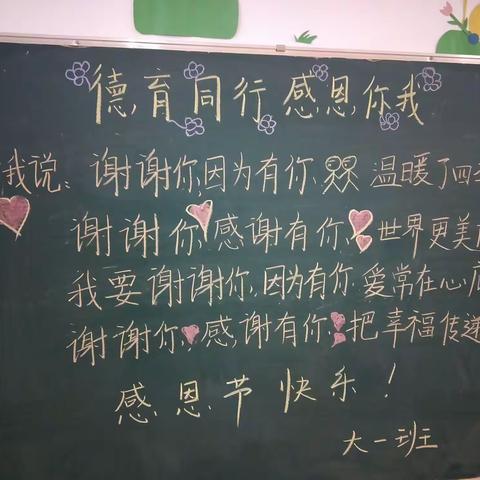 德育同行 感恩你我
我说：谢谢你,因为有你,温暖了四
谢谢你,感谢有你,世界更美
我要谢谢你,因为有你.爱常在心底
谢谢你,感谢有你,把幸福传递
感恩节快乐!
大一班